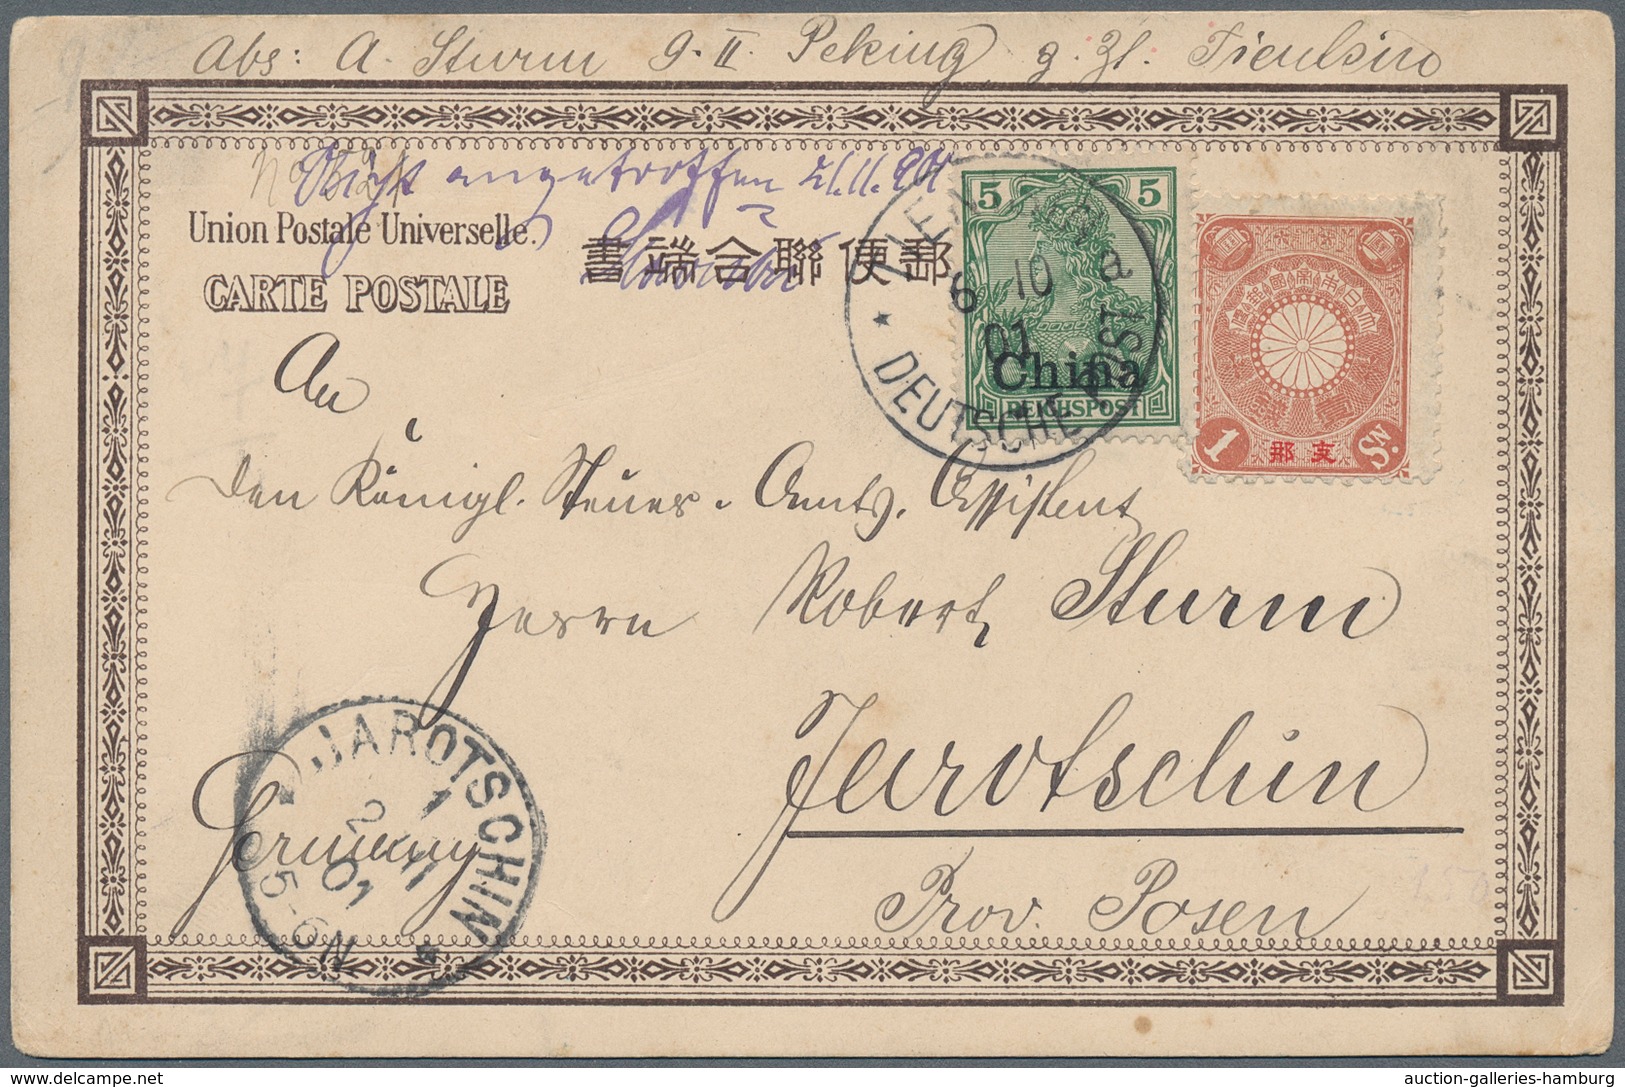 Abs: A. Sturm 9. II Peking, z. Zt. Tientsin
Nicht angetroffen 21.11.01
Union Postale Universelle.
書端合聯便郵
CARTE POSTALE
TIENTSIN a
6 10
01
* DEUTSCHE POST
5 5
China
REICHSPOST
大日本帝國郵便
支那
1 Sn.
An
den Königl. Steuer-Amts-Assistent
Herrn Robert Sturm
Jarotschin
Prov. Posen
Germany
JAROTSCHIN *
1
2 11
01
5-6N
auction-galleries-hamburg